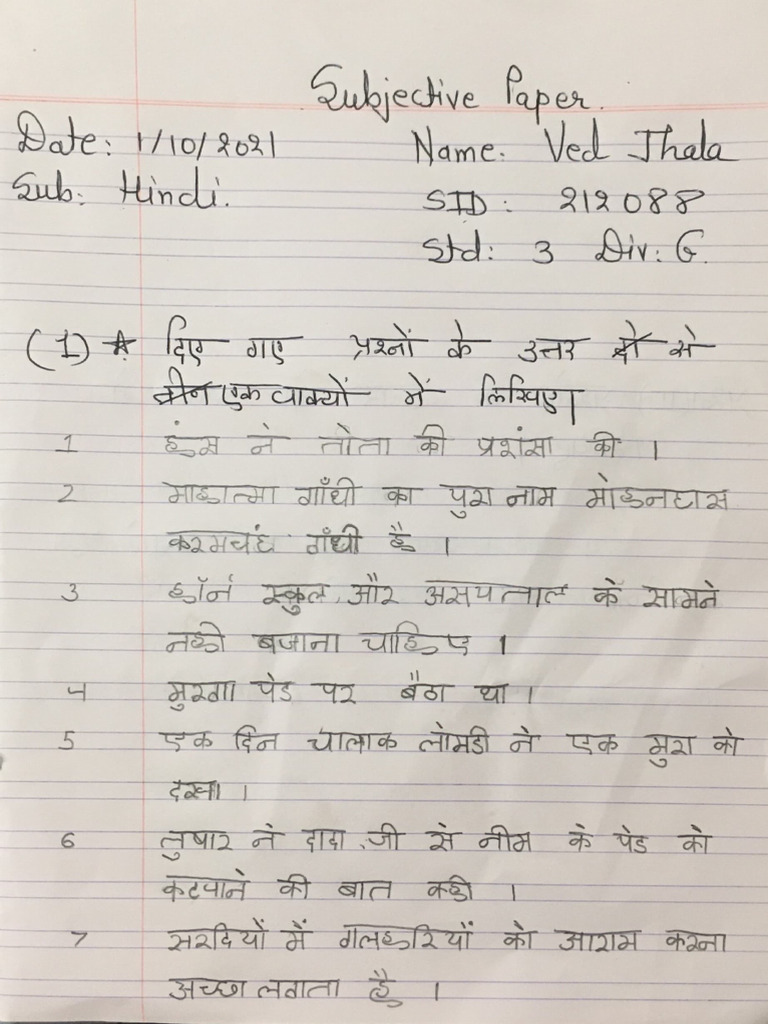 Subjective Paper.
Date: 1/10/2021 Name: Ved Jhala
Sub: Hindi. SID: 212088
Std: 3 Div: G.
(1) * दिए गए प्रश्नों के उत्तर दो से
तीन एक वाक्यों में लिखिए।
1 हंस ने तोता की प्रशंसा की ।
2 माहात्मा गाँधी का पुरा नाम मोहनदास
करमचंद गाँधी है ।
3 हॉर्न स्कुल और असपताल के सामने
नही बजाना चाहिए ।
4 मुरगा पेड पर बैठा था ।
5 एक दिन चालाक लोमडी ने एक मुरा को
देखा ।
6 तुषार ने दादा जी से नीम के पेड को
कटवाने की बात कही ।
7 सरदियों में गलहरियों को आराम करना
अच्छा लगता है ।